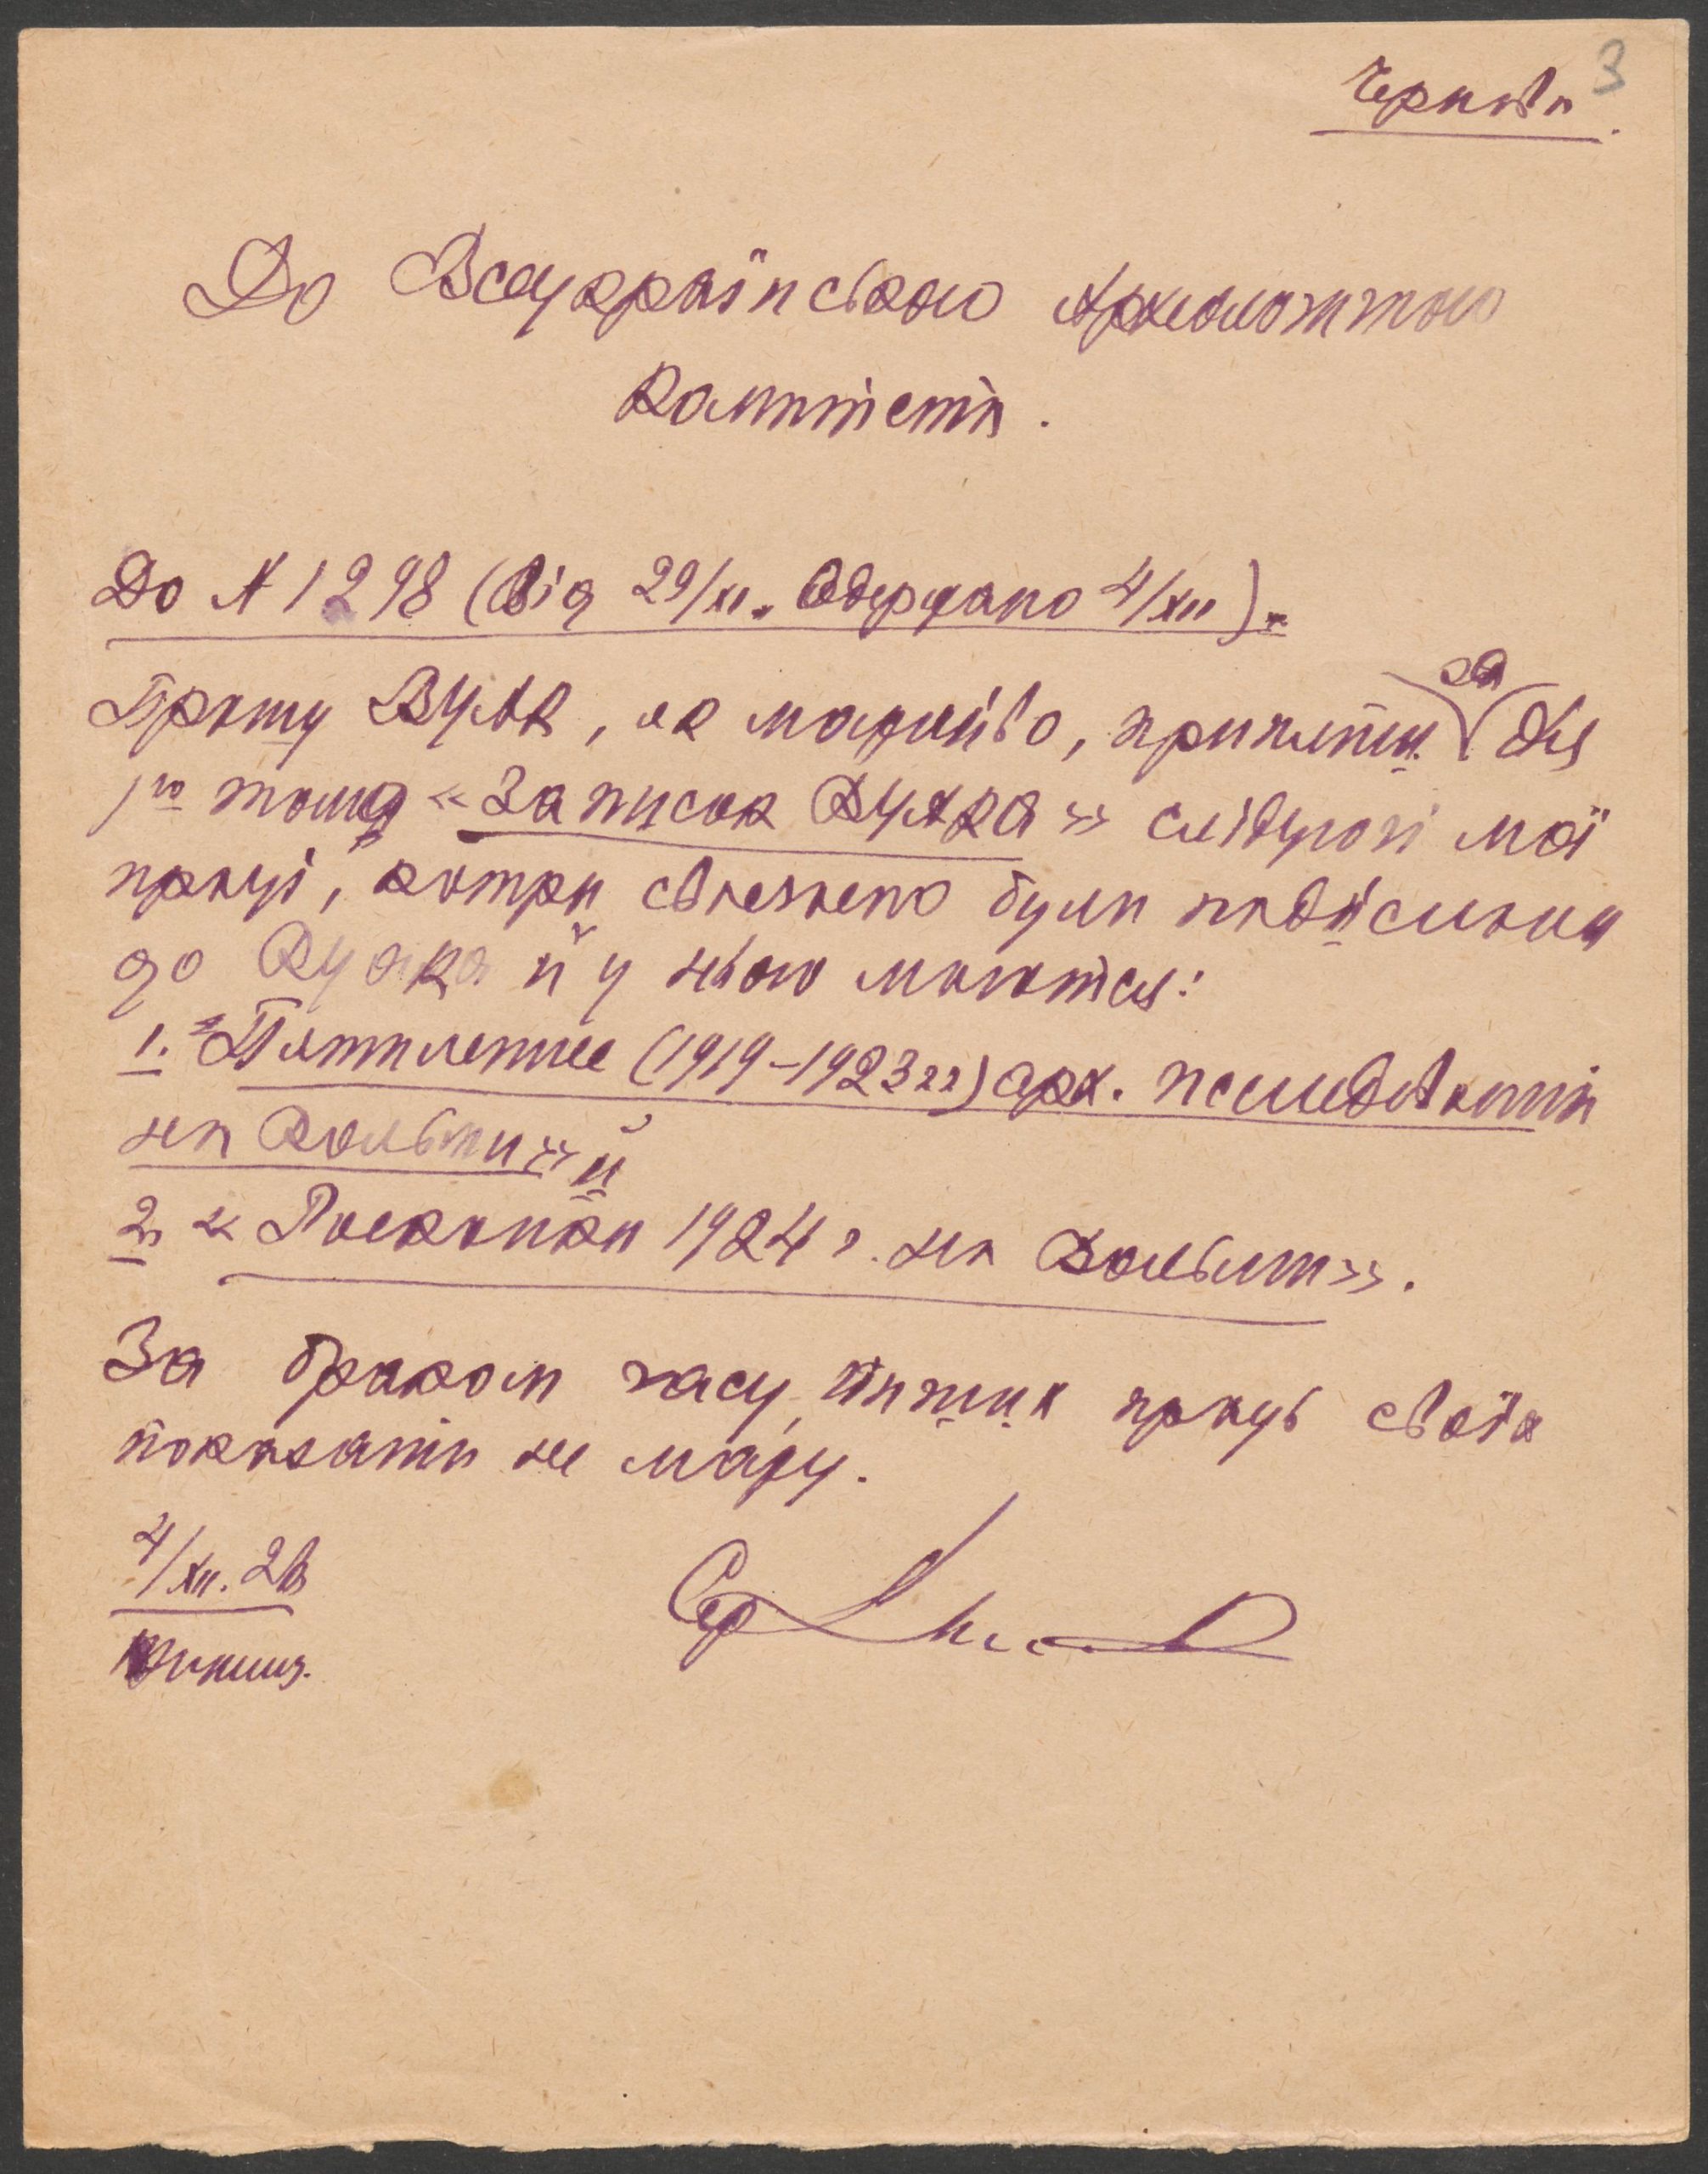 3
Чернов
До Всеукраїнського Археологичного
Комитету.
До № 1298 (Від 29/XI. Одержано 4/XII).
Прошу ВУАК, як можливо, прийняти за для
1го тому «Записок ВУАКа» слідуючі мої
праці, котри своечасно були надіслани
до ВУАКа й у нього маються:
1. "Пятилетие (1919–1923 гг) арх. исследований
на Волыни» й
2. « Раскопки 1924 г. на Волыни».
За браком часу, інших праць своїх
показати не можу.
4/XII. 26